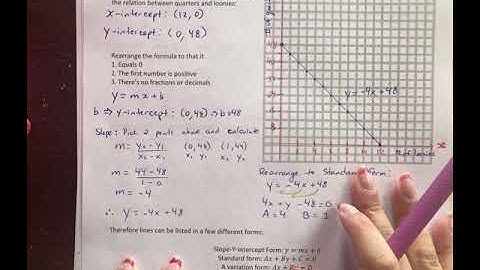 the relation between quarters and loonies:
x-intercept: (12, 0)
y-intercept: (0, 48)
Rearrange the formula to that it
1. Equals 0
2. The first number is positive
3. There's no fractions or decimals
y = mx + b
b ⇒ y-intercept: (0,48) ⇒ b=48
Slope: Pick 2 points above and calculate
m = y₂ - y₁ / x₂ - x₁ (0,48) (1,44)
x₁ y₁ x₂ y₂
m = 44 - 48 / 1 - 0
m = -4
∴ y = -4x + 48
y = -4x+48
# of loonies
x
Rearrange to Standard Form:
y = -4x + 48
4x + y - 48 = 0
A = 4 B = 1
Therefore lines can be listed in a few different forms:
Slope-Y-Intercept Form: y = mx + b
Standard form: Ax + By + C = 0
A variation form: Ax + By = C